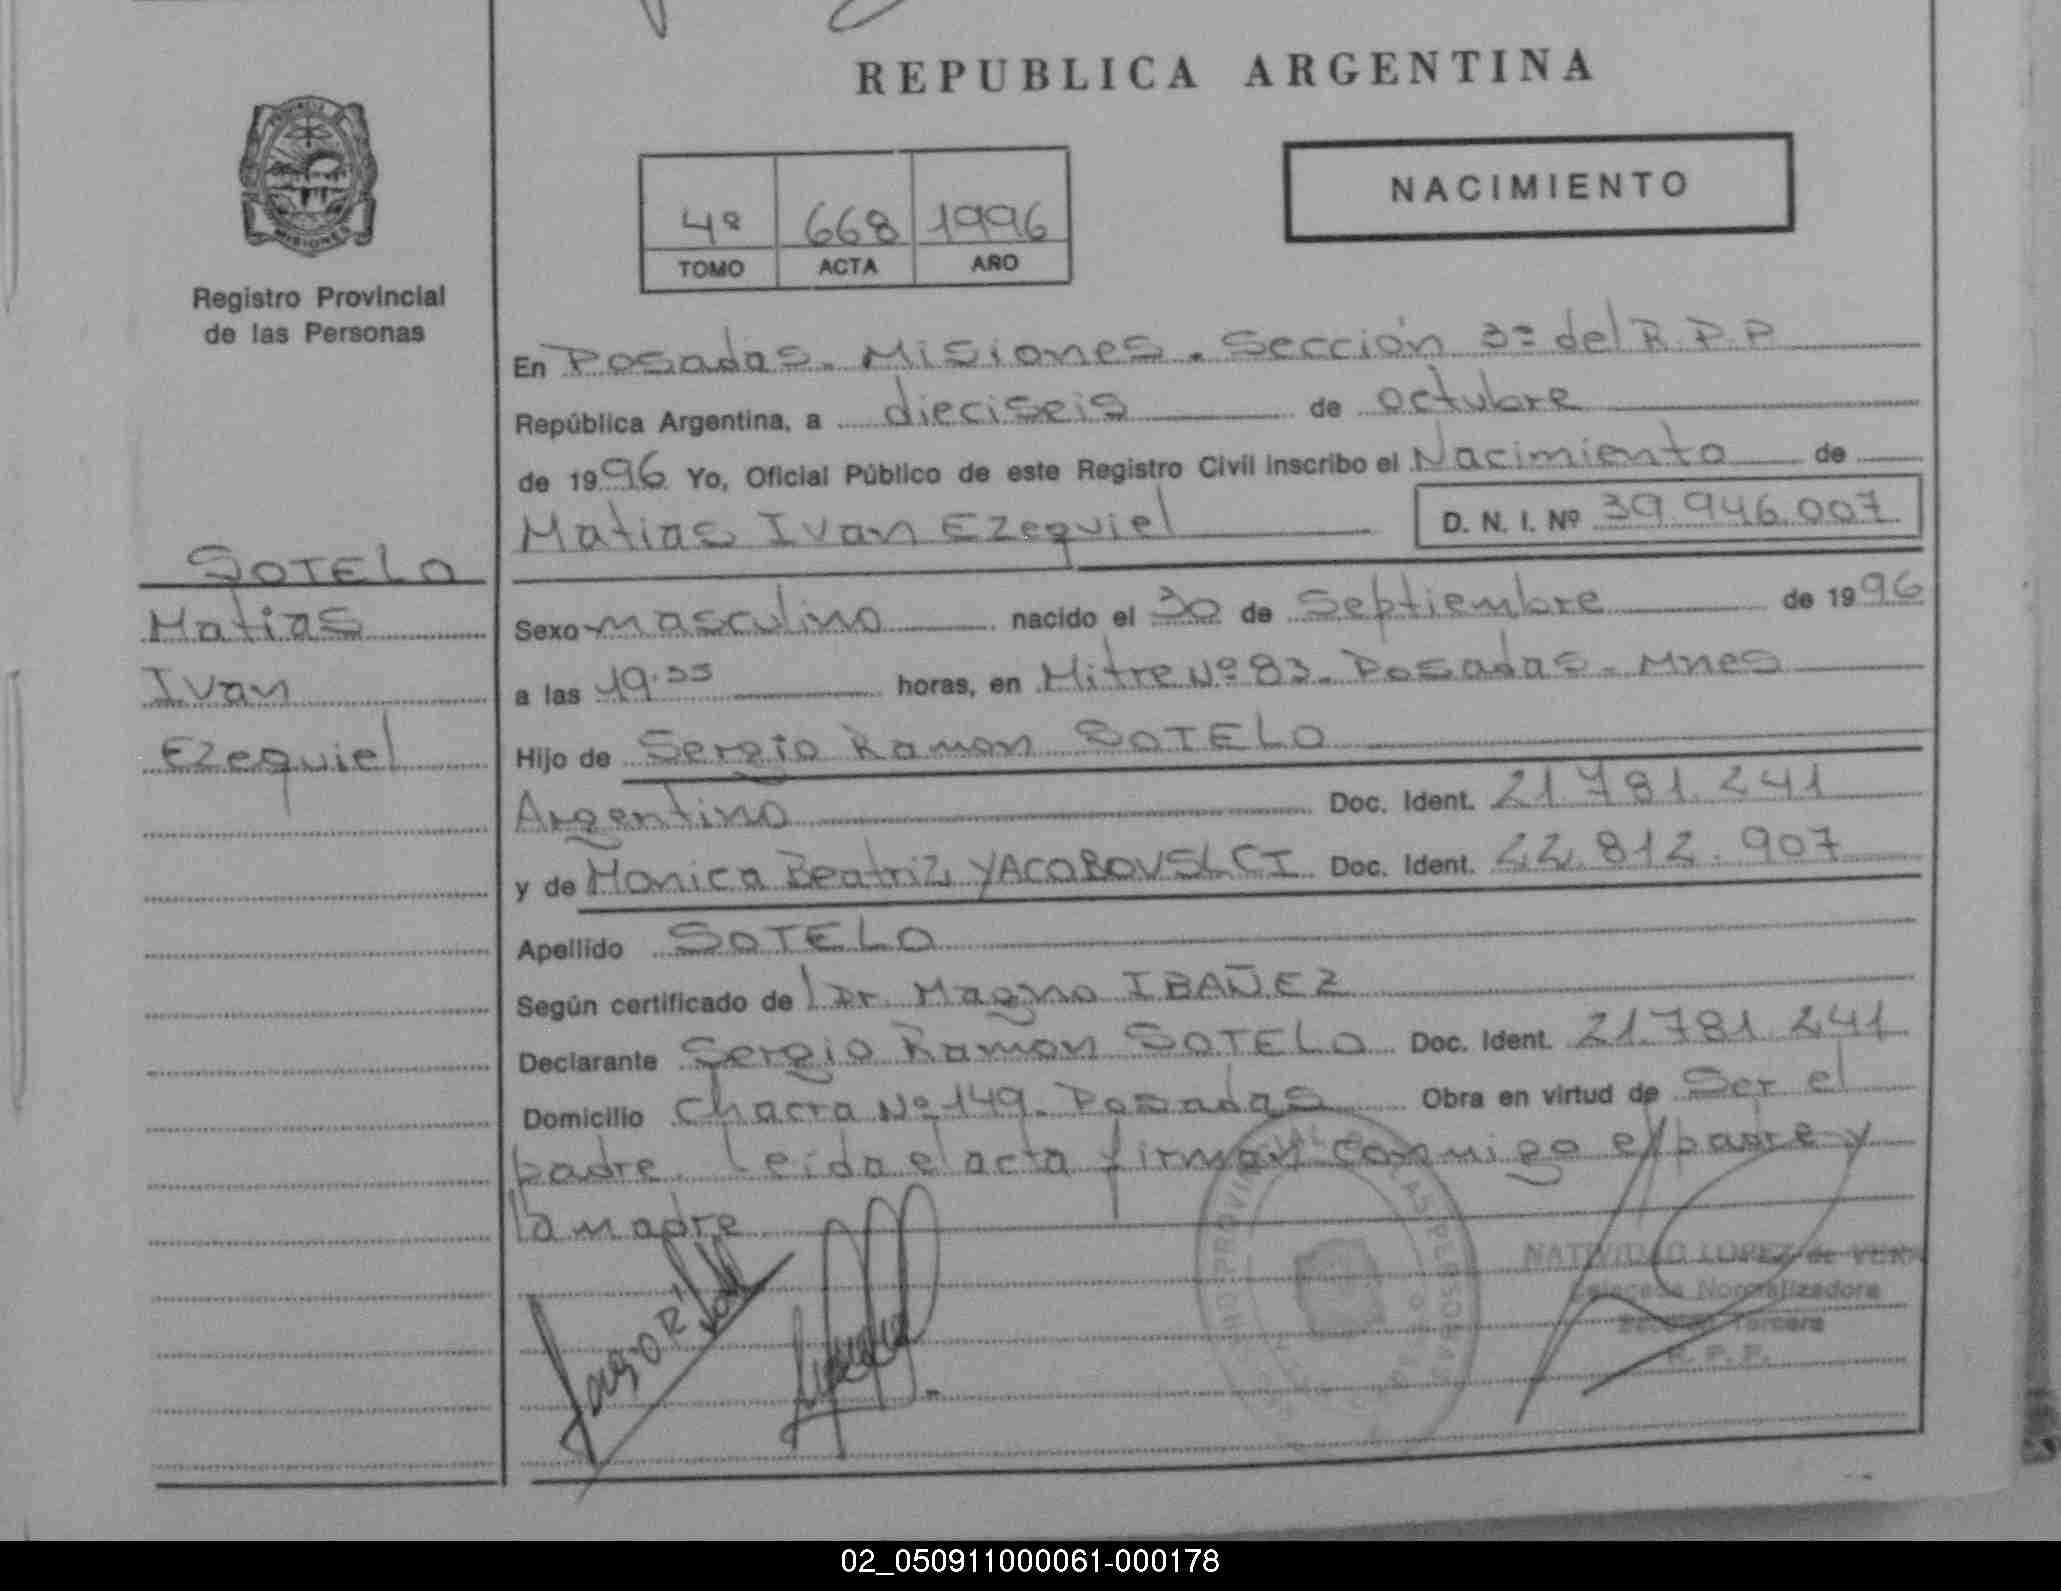 REPUBLICA ARGENTINA
PROVINCIA
MISIONES
Registro Provincial
de las Personas
NACIMIENTO
4º 668 1996
TOMO ACTA AÑO
En Posadas. Misiones. Sección 3º del R.P.P
República Argentina, a dieciseis de octubre
de 1996 Yo, Oficial Público de este Registro Civil inscribo el Nacimiento de
Matias Ivan Ezequiel D. N. I. Nº 39.946.007
SOTELO
Matias
Ivan
Ezequiel
Sexo masculino nacido el 30 de Septiembre de 1996
a las 19:55 horas, en Mitre Nº 83. Posadas. Mnes
Hijo de Sergio Ramon SOTELO
Argentino Doc. Ident. 21.781.241
y de Monica Beatriz YACOBOVSLCI Doc. Ident. 22.812.907
Apellido SOTELO
Según certificado de l Dr. Magno IBAÑEZ
Declarante Sergio Ramon SOTELO Doc. Ident. 21.781.241
Domicilio Chacra Nº 149. Posadas Obra en virtud de Ser el
padre. Leída el acta firman conmigo el padre y
la madre
NATIVIDAD LOPEZ de VERA
Delegada Normalizadora
Sección Tercera
R. P. P.
02_050911000061-000178